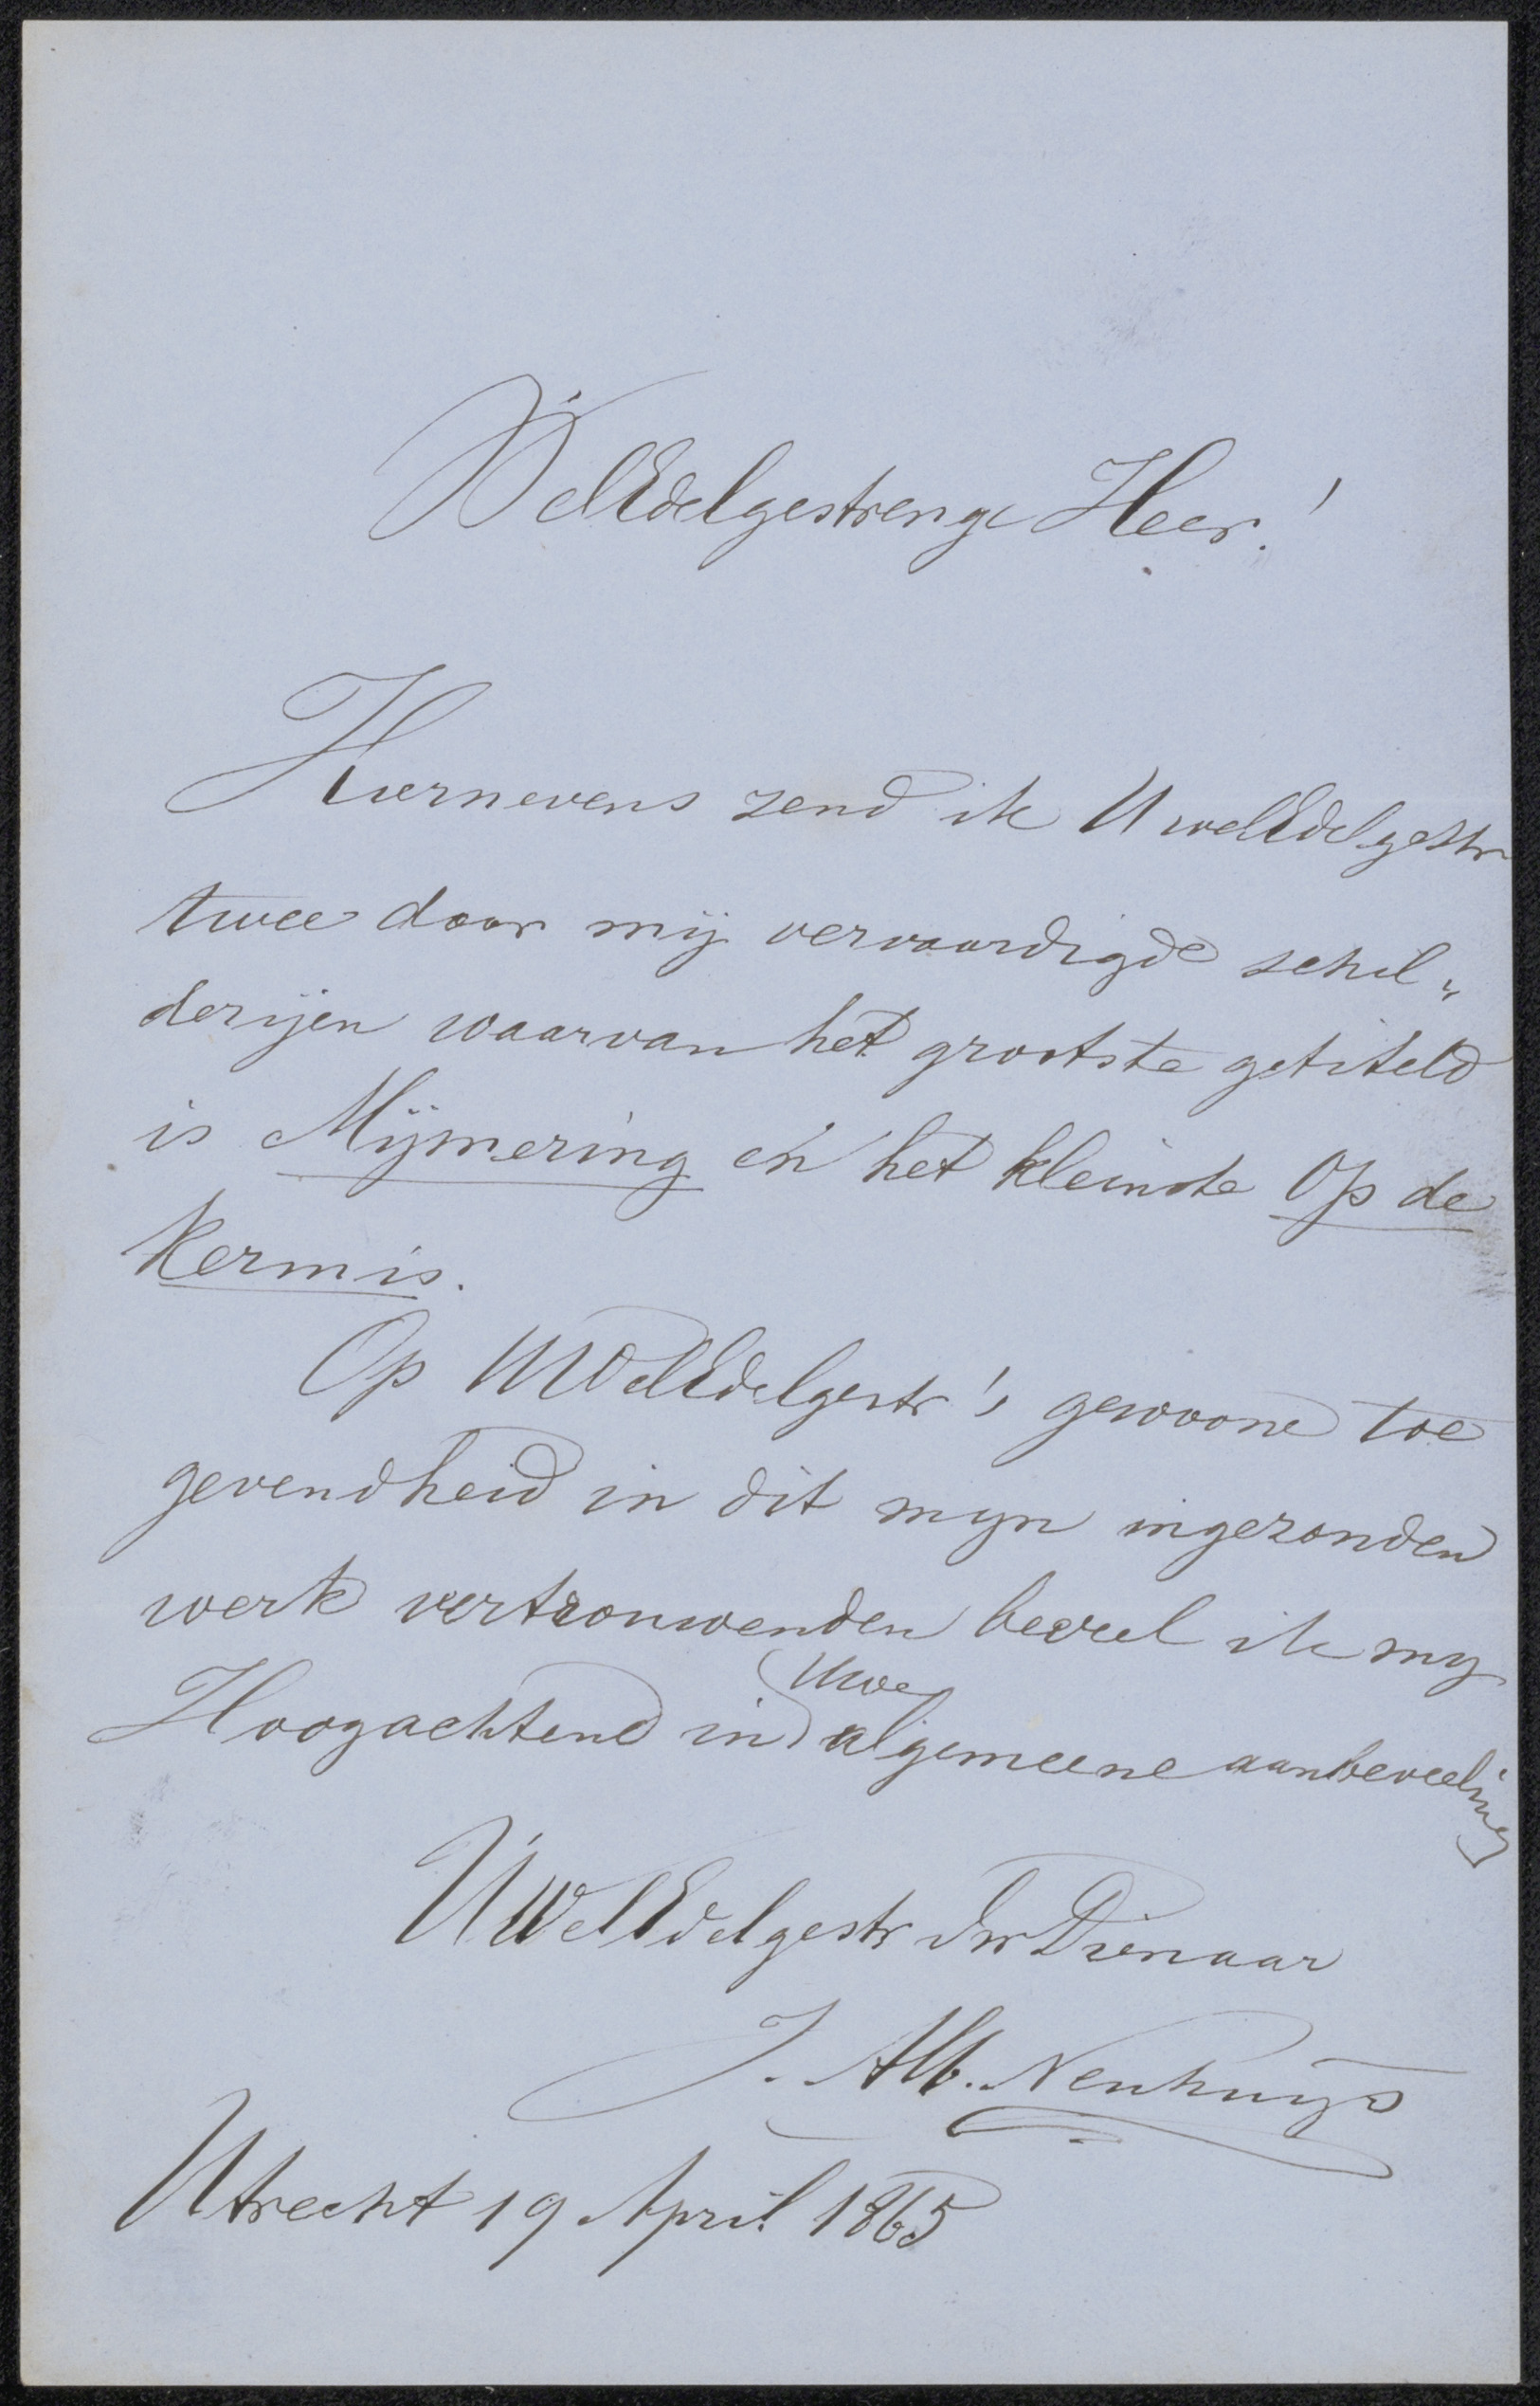 WelEdelgestrenge Heer!
Hiernevens zend ik UwelEdelgestr
twee door mij vervaardigde schil„
derijen waarvan het grootste getiteld
is Mijmering en het kleinste Op de
Kermis.
Op UWelEdelgestr's gewoone toe
gevendheid in dit myn ingezonden
werk vertrouwenden beveel ik my
Hoogachtend in Uwe algemeene aanbeveeling
UWelEdelgestr Dw Dienaar
J. Alb. Neuhuys
Utrecht 19 April 1865